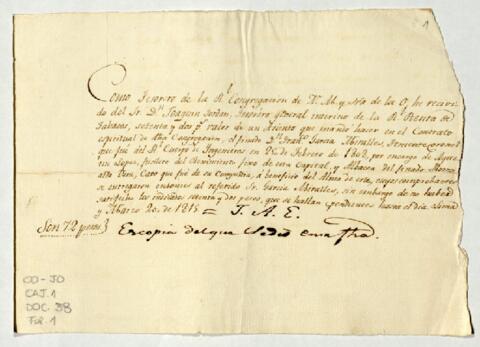 1
Como Tesorero de la Rl. Congregacion de N. M. y Sra. de la O, he recevi-
do del Sr. Dn. Joaquin Jordan, Tesorero general interino de la Rl. Renta de
Tabacos, setenta y dos ps. valor de un Asiento que mandó hacer en el Contrato
espiritual de dha Congregacion, el finado Dn. Franco. Garcia Miralles, Teniente coronel
que fué del Rl. Cuerpo de Ingenieros en 22 de Febrero de por encargo de
Lopez, del Regimiento fixo de esta Capital, y Albacea del finado
Pera, Cavo que fué de su Compañia, á beneficio del Alma de este, cuyos comprobantes
se entregaron entonces al referido Sr. Garcia Miralles, sin embargo de no haberse
satisfecho los indicados setenta y dos pesos, que se hallan pendientes hasta el dia. Lima
y Marzo 20. de 1815 = J. A. E.
Son 72 pesos}
Es copia del que se dio en esta fha.
OO-JO
CAJ. 1
DOC. 38
FOL. 1